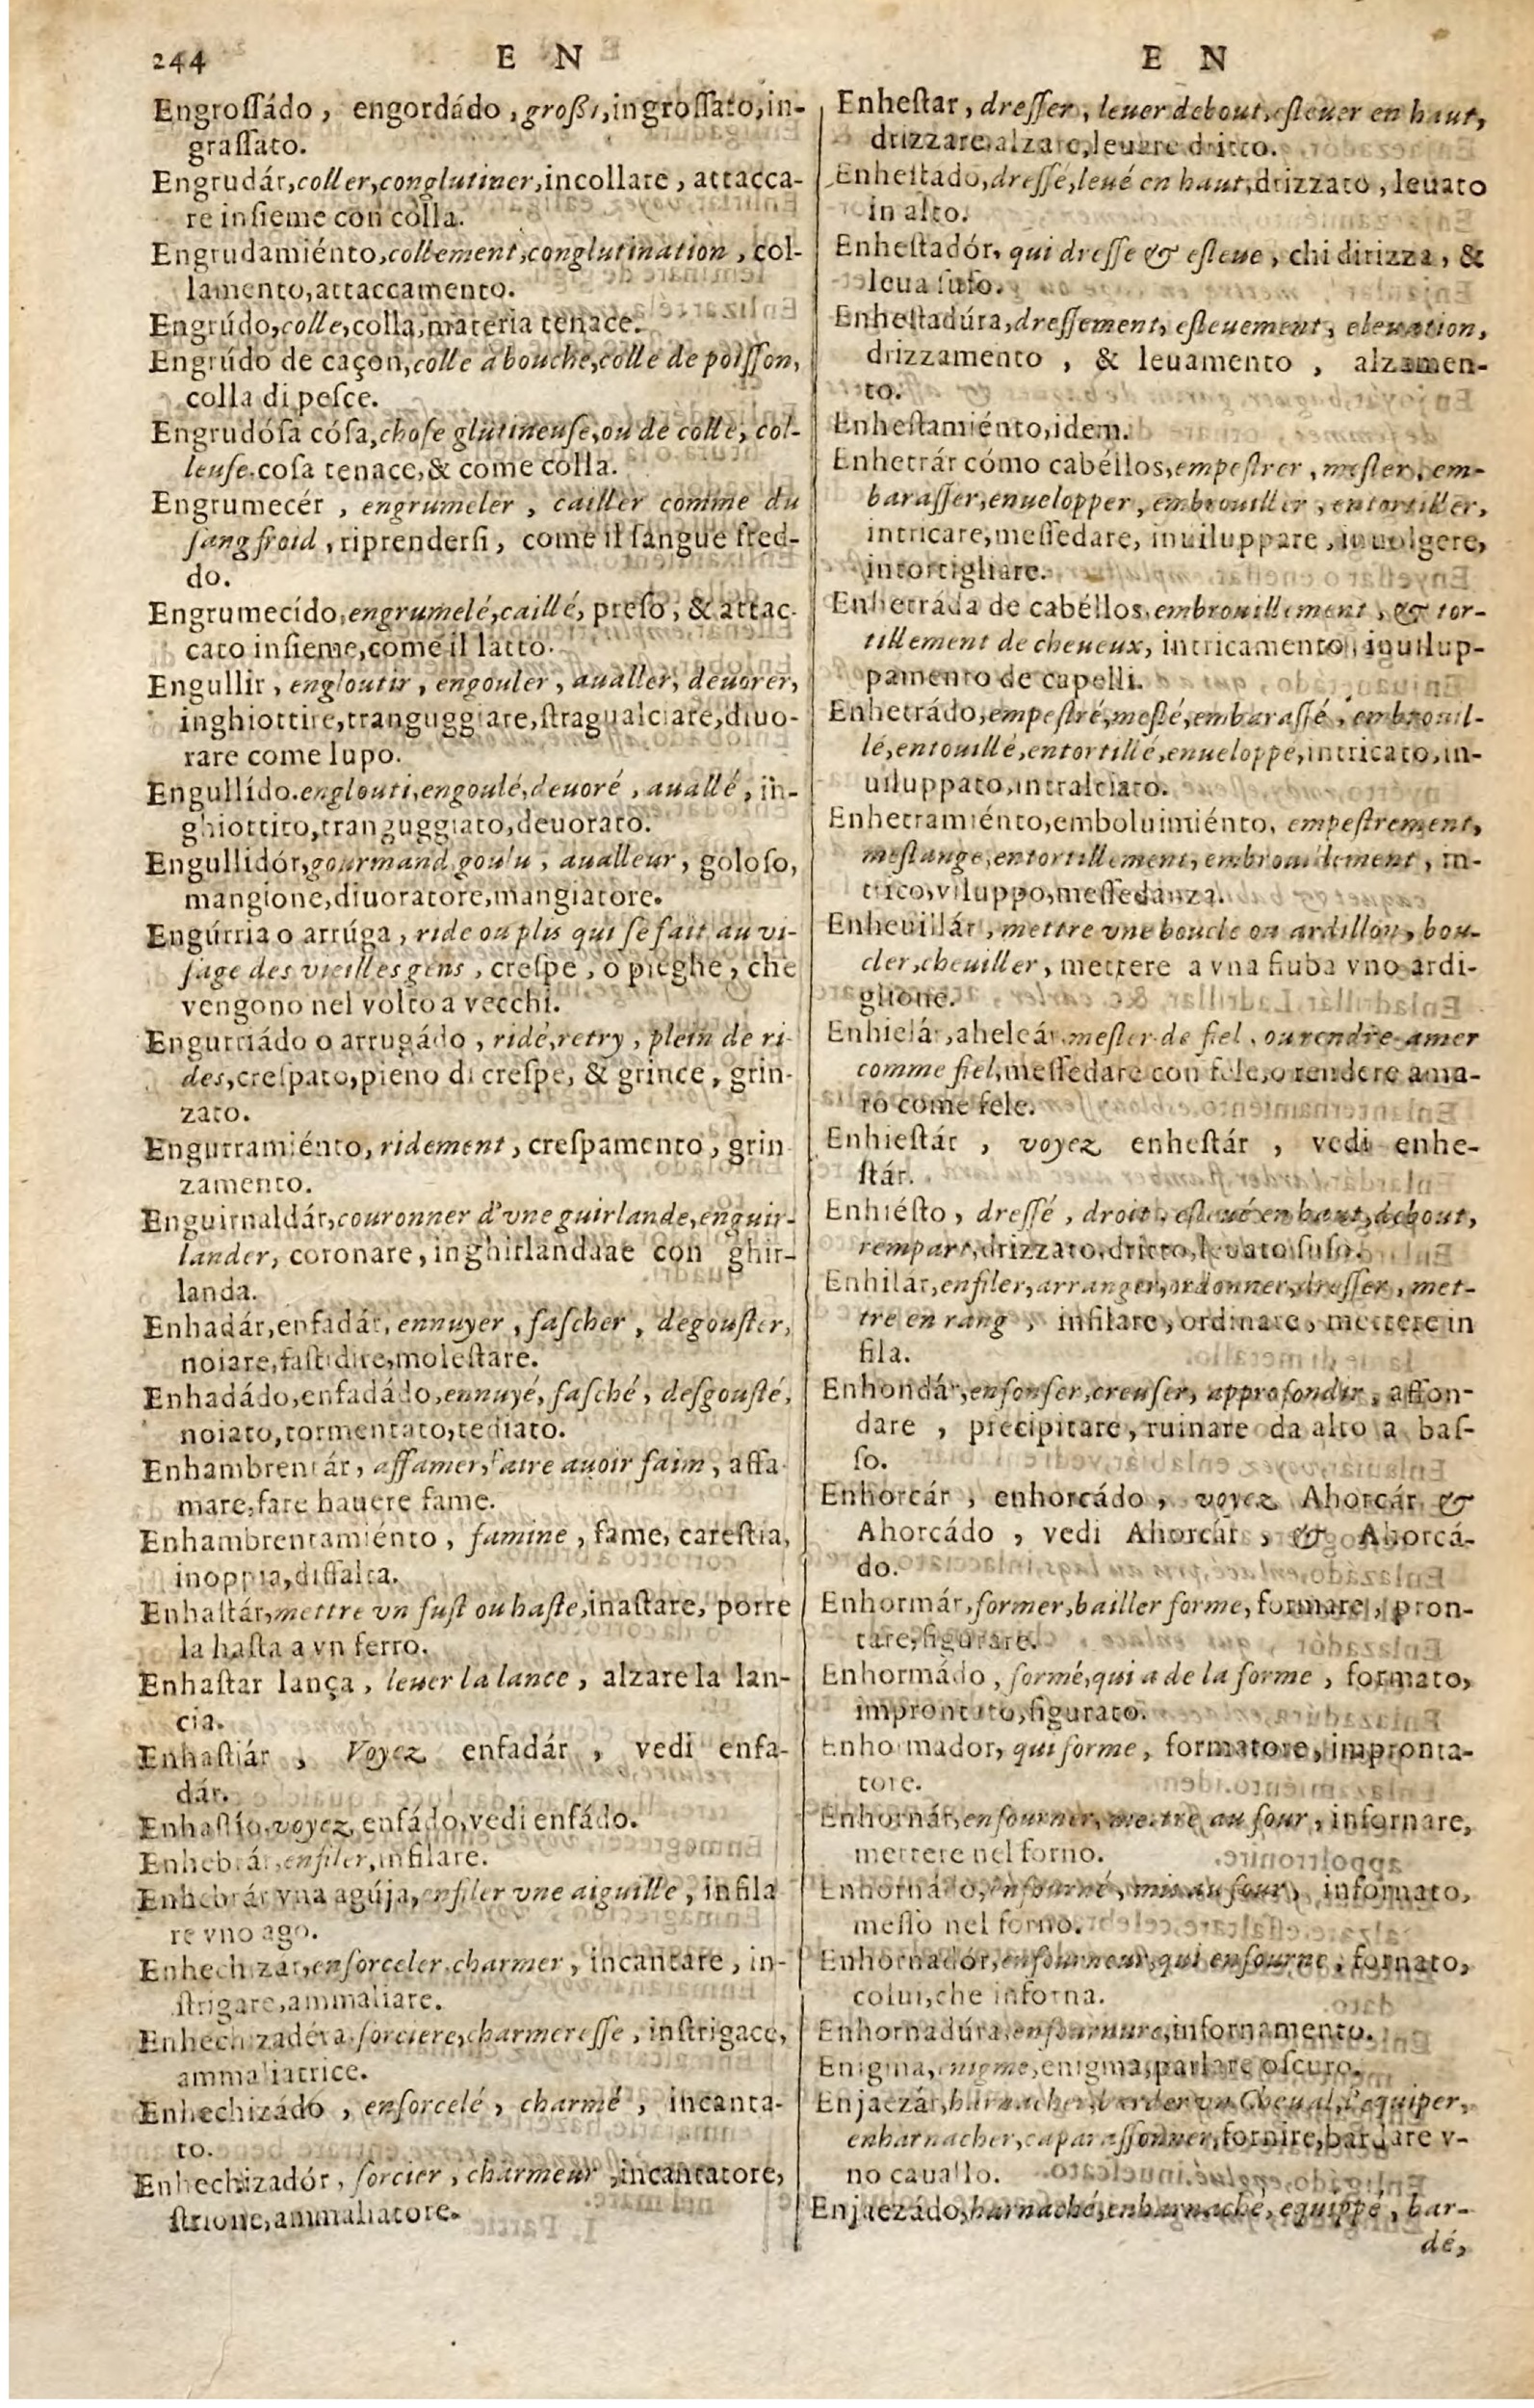 244 E N
Engroſſádo, engordádo, großi, ingroſſato, in-
graſſato.
Engrudár, coller, conglutiner, incollare, attacca-
re inſieme con colla.
Engrudamiénto, collement, conglutination, col-
lamento, attaccamento.
Engrúdo, colle, colla, materia tenace.
Engrúdo de caçon, colle a bouche, colle de poiſſon,
colla di peſce.
Engrudóſa cóſa, choſe glutineuſe, ou de colle, col-
leuſe. coſa tenace, & come colla.
Engrumecér, engrumeler, cailler comme du
ſang froid, riprenderſi, come il ſangue fred-
do.
Engrumecído, engrumelé, caillé, preſo, & attac-
cato inſieme, come il latto.
Engullir, engloutir, engouler, aualler, deuorer,
inghiottire, tranguggiare, ſtragualciare, diuo-
rare come lupo.
Engullído. englouti, engoulé, deuoré, auallé, in-
ghiottito, tranguggiato, deuorato.
Engullidór, gourmand, goulu, aualleur, goloſo,
mangione, diuoratore, mangiatore.
Engúrria o arrúga, ride ou plis qui ſe fait au vi-
ſage des vieilles gens, creſpe, o pieghe, che
vengono nel volto a vecchi.
Engurriádo o arrugádo, ridé, retry, plein de ri-
des, creſpato, pieno di creſpe, & grince, grin-
zato.
Engurramiénto, ridement, creſpamento, grin
zamento.
Enguirnaldár, couronner d'vne guirlande, enguir-
lander, coronare, inghirlandaae con ghir-
landa.
Enhadár, enfadár, ennuyer, faſcher, degouſter,
noiare, faſtidire, moleſtare.
Enhadádo, enfadádo, ennuyé, faſché, deſgouſté,
noiato, tormentato, tediato.
Enhambrentár, affamer, faire auoir faim, affa-
mare, fare hauere fame.
Enhambrentamiénto, famine, fame, careſtia,
inoppia, diffalta.
Enhaſtár, mettre vn fuſt ou haſte, inaſtare, porre
la haſta a vn ferro.
Enhaſtar lança, leuer la lance, alzare la lan-
cia.
Enhaſtiár, Voyez enfadár, vedi enfa-
dár.
Enhaſtío, voyez enfádo, vedi enfádo.
Enhebrár, enfiler, infilare.
Enhebrár vna agúja, enfiler vne aiguille, infila
re vno ago.
Enhechizár, enſorceler, charmer, incantare, in-
ſtrigare, ammaliare.
Enhechizadéra. ſorciere, charmereſſe, inſtrigace,
ammaliatrice.
Enhechizádo, enſorcelé, charmé, incanta-
to.
Enhechizadór, ſorcier, charmeur, incantatore,
ſtrione, ammaliatore.
E N
Enheſtar, dreſſer, leuer debout, eſleuer en haut,
drizzare, alzare, leuare dritto.
Enheſtado, dreſſé, leué en haut, drizzato, leuato
in alto.
Enheſtadór, qui dreſſe & eſleue, chi dirizza, &
leua ſuſo.
Enheſtadúra, dreſſement, eſleuement, eleuation,
drizzamento, & leuamento, alzamen-
to.
Enheſtamiénto, idem.
Enhetrár cómo cabéllos, empeſtrer, meſler, em-
baraſſer, enuelopper, embrouiller, entortiller,
intricare, meſſedare, inuiluppare, inuolgere,
intortigliare.
Enhetráda de cabéllos, embrouillement, & tor-
tillement de cheueux, intricamento, inuilup-
pamento de capelli.
Enhetrádo, empeſtré, meſlé, embaraſſé, embrouil-
lé, entouillé, entortillé, enueloppé, intricato, in-
uiluppato, intralciato.
Enhetramiénto, emboluimiénto, empeſtrement,
meſlange, entortillement, embrouillement, in-
trico, viluppo, meſſedanza.
Enheuillár, mettre vne boucle ou ardillon, bou-
cler, cheuiller, mettere a vna fiuba vno ardi-
glione.
Enhielár, aheleár, meſler de fiel, ou rendre amer
comme fiel, meſſedare con fele, o rendere ama-
ro come fele.
Enhieſtár, voyez enheſtár, vedi enhe-
ſtár.
Enhiéſto, dreſſé, droit, eſleué en haut, debout,
rempart, drizzato, dritto, leuato ſuſo.
Enhilár, enfiler, arranger, ordonner, dreſſer, met-
tre en rang, infilare, ordinare, mettere in
fila.
Enhondár, enfonſer, creuſer, approfondir, affon-
dare, precipitare, ruinare da alto a baſ-
ſo.
Enhorcár, enhorcádo, voyez Ahorcár &
Ahorcádo, vedi Ahorcár, & Ahorcá-
do.
Enhormár, former, bailler forme, formare, pron-
tare, figurare.
Enhormádo, formé, qui a de la forme, formato,
improntato, figurato.
Enhormador, qui forme, formatore, impronta-
tore.
Enhornár, enfourner, mettre au four, infornare,
mettere nel forno.
Enhornádo, enfourné, mis au four, infornato,
meſſo nel forno.
Enhornadór, enfourneur, qui enfourne, fornato,
colui, che inforna.
Enhornadúra, enfournure, infornamento.
Enigma, enigme, enigma, parlare oſcuro.
Enjaezár, harnacher, barder vn Cheual, l'equiper,
enharnacher, caparaſſonner, fornire, bardare v-
no cauallo.
Enjaezádo, harnaché, enharnaché, equippé, bar-
dé,